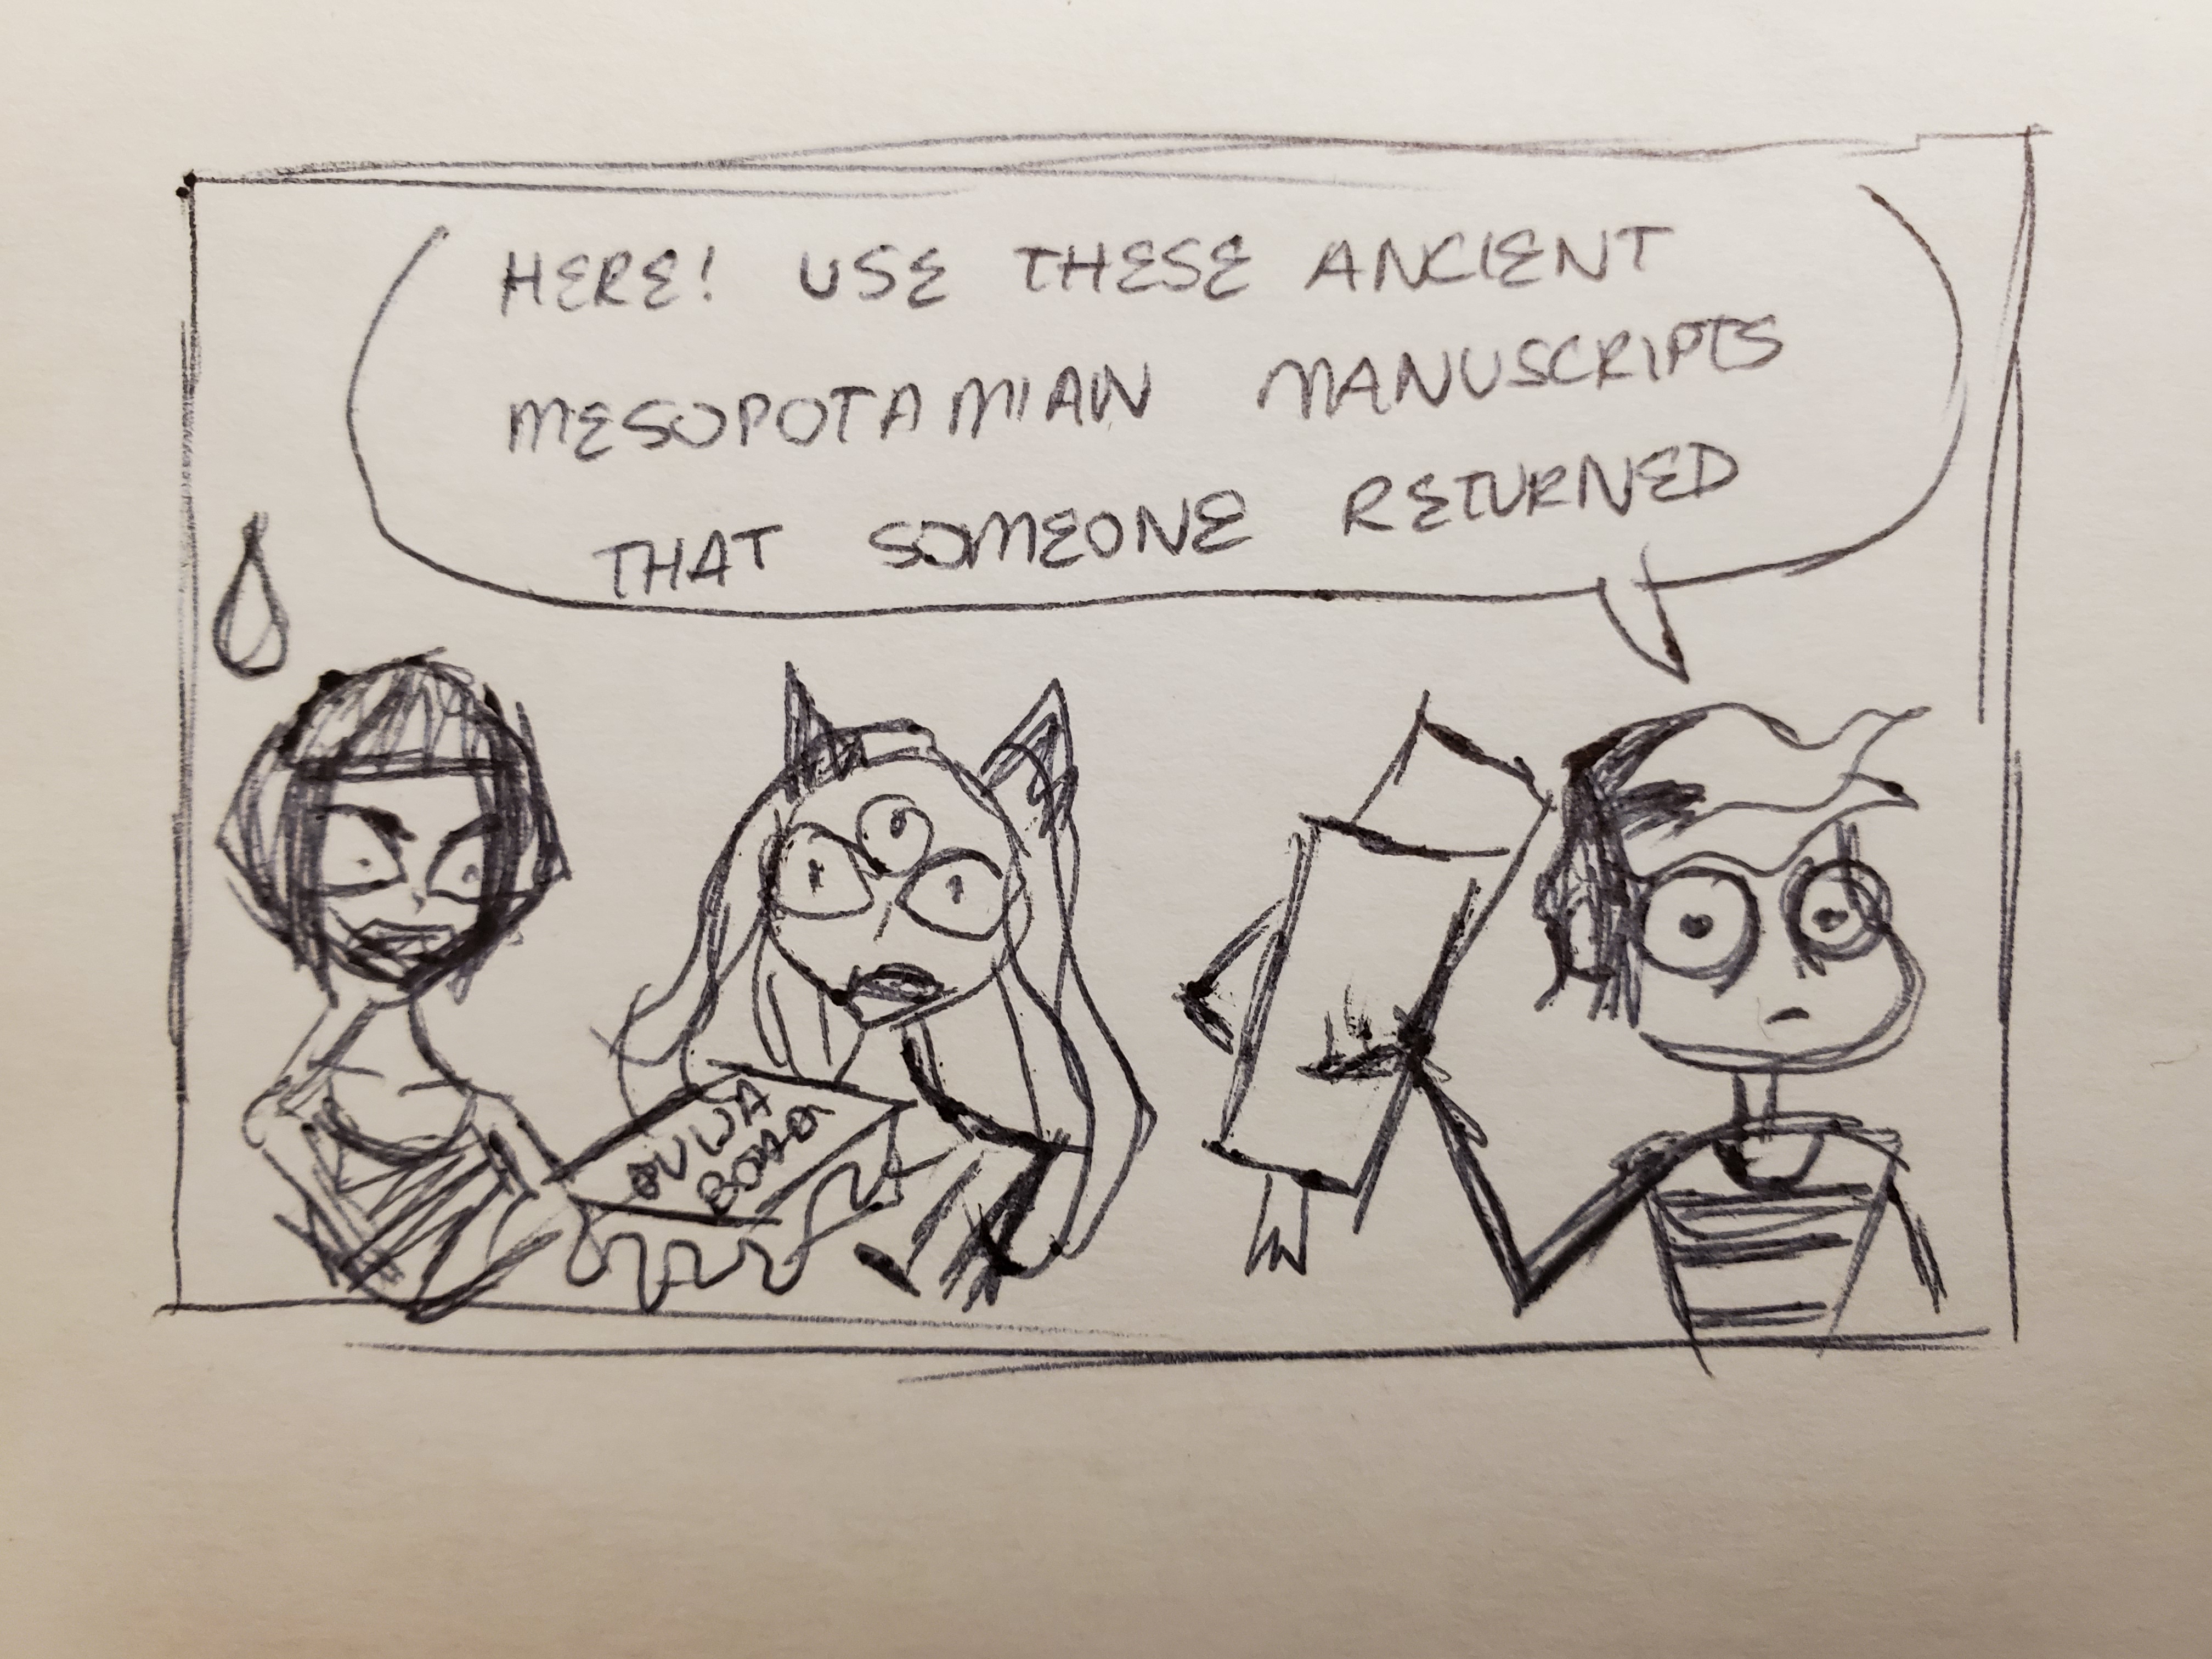 HERE! USE THESE ANCIENT
MESOPOTAMIAN MANUSCRIPTS
THAT SOMEONE RETURNED
OUIJA
BOARD